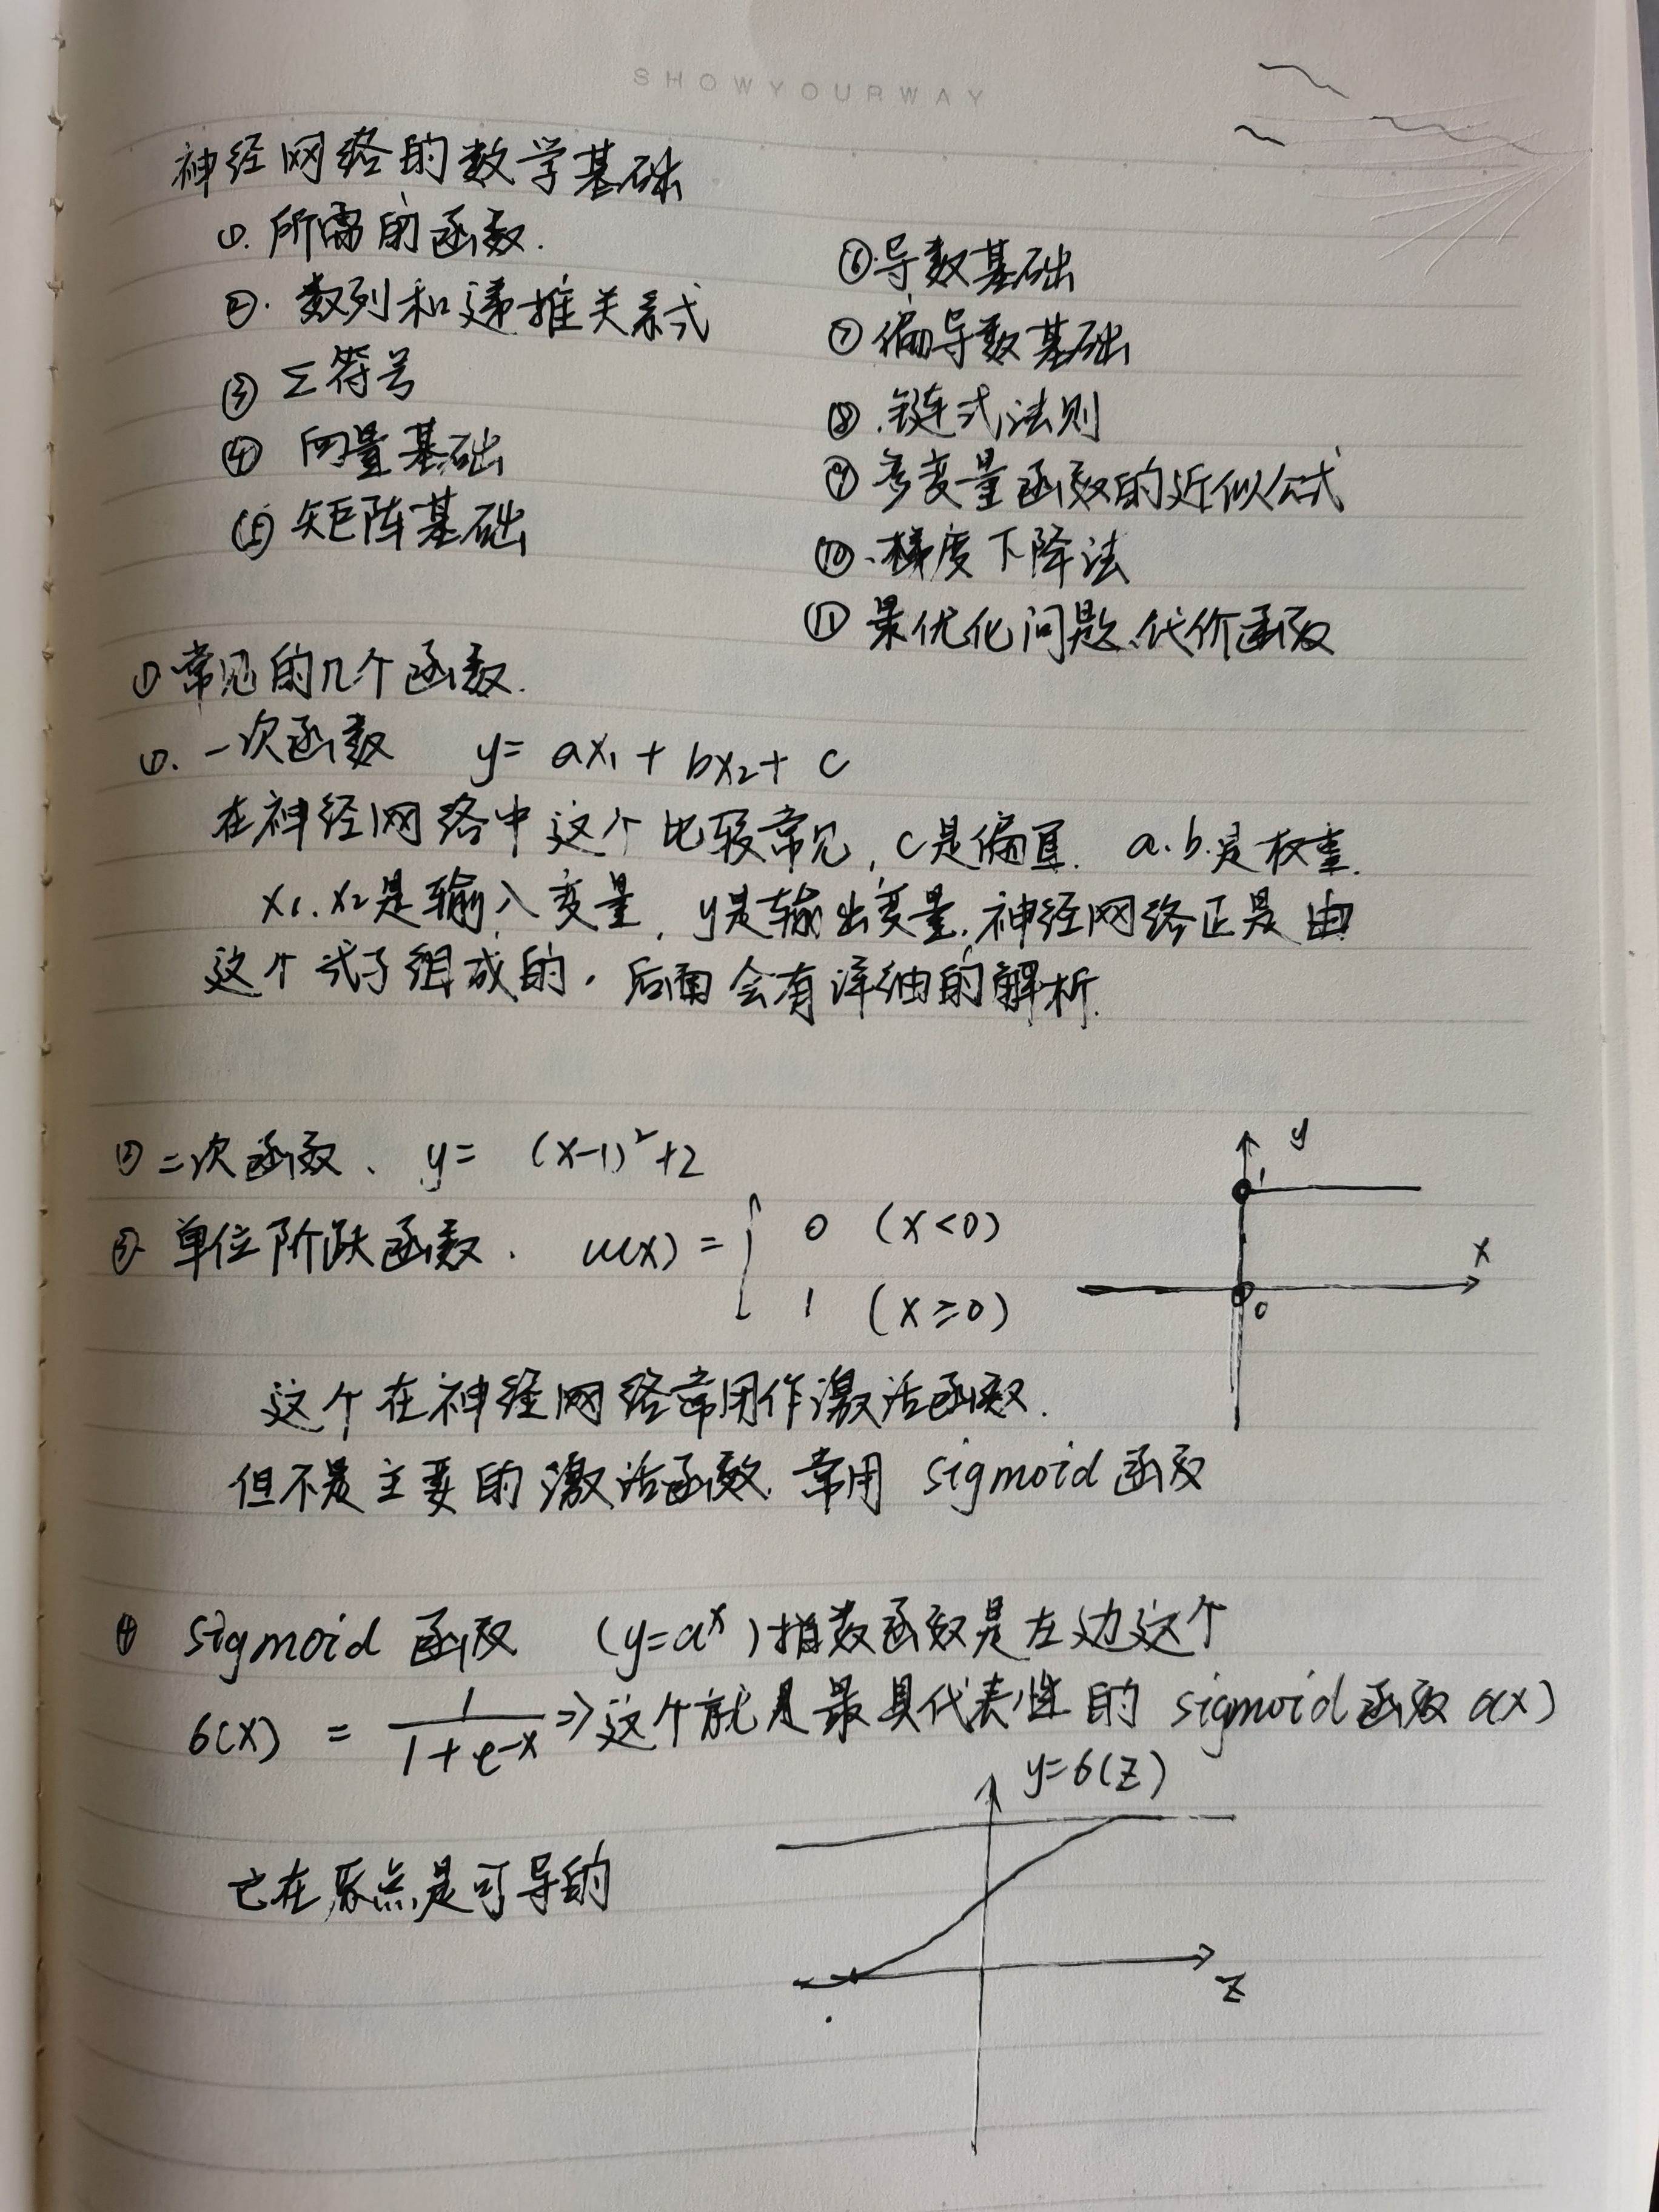 SHOWYOURWAY
神经网络的数学基础
①. 所需的函数.
②. 数列和递推关系式
③ Σ符号
④ 向量基础
⑤ 矩阵基础
⑥导数基础
⑦偏导数基础
⑧.链式法则
⑨多变量函数的近似公式
⑩、梯度下降法
⑪ 最优化问题、代价函数
①常见的几个函数.
①. 一次函数 y= ax₁ + bx₂+ c
在神经网络中这个比较常见, c是偏置. a.b.是权重.
x₁.x₂是输入变量, y是输出变量.神经网络正是由
这个式子组成的. 后面会有详细的解析.
②二次函数、 y= (x-1)²+2
③. 单位阶跃函数. u(x) = { 0 (x<0)
1 (x≥0)
y
1
x
0
这个在神经网络常用作激活函数.
但不是主要的激活函数. 常用 sigmoid函数
④ sigmoid 函数 (y=aˣ)指数函数是左边这个
σ(x) = 1/(1+e⁻ˣ) ⇒这个就是最具代表性的 sigmoid函数 σ(x)
y=σ(z)
它在原点是可导的
z